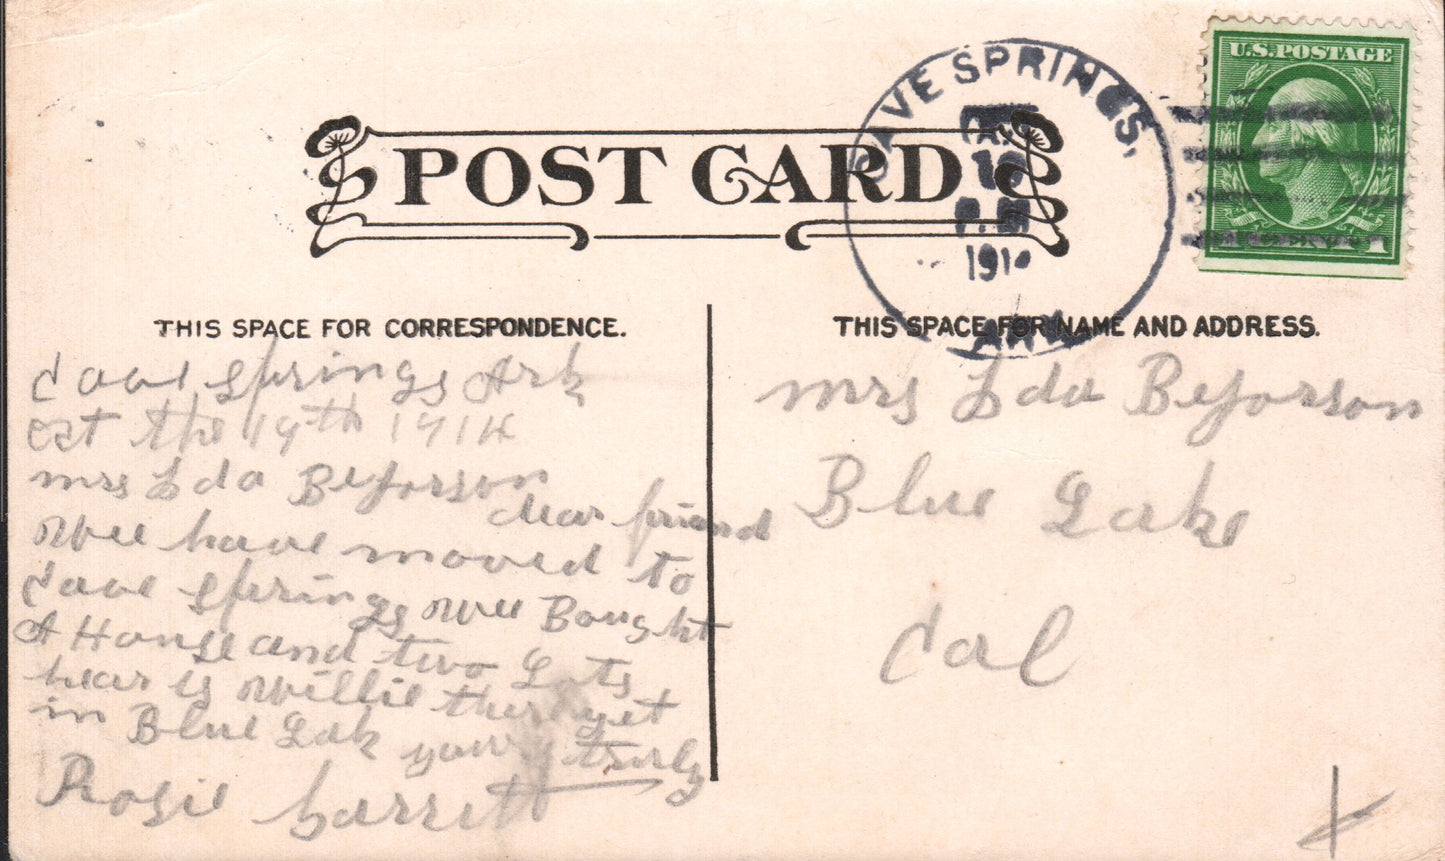 POST CARD
CAVE SPRINGS,
19
P.M
191
ARK
U.S.POSTAGE
1
THIS SPACE FOR CORRESPONDENCE.
Cave Springs Ark
oct the 19th 1914
mrs Ida Beforson
dear friend
wee have moved to
Cave Springs wee Bought
A House and two Lots
hear is Willie there yet
in Blue Lak yours truly
Rosie Garrett
THIS SPACE FOR NAME AND ADDRESS.
mrs Ida Beforson
Blue Lake
Cal